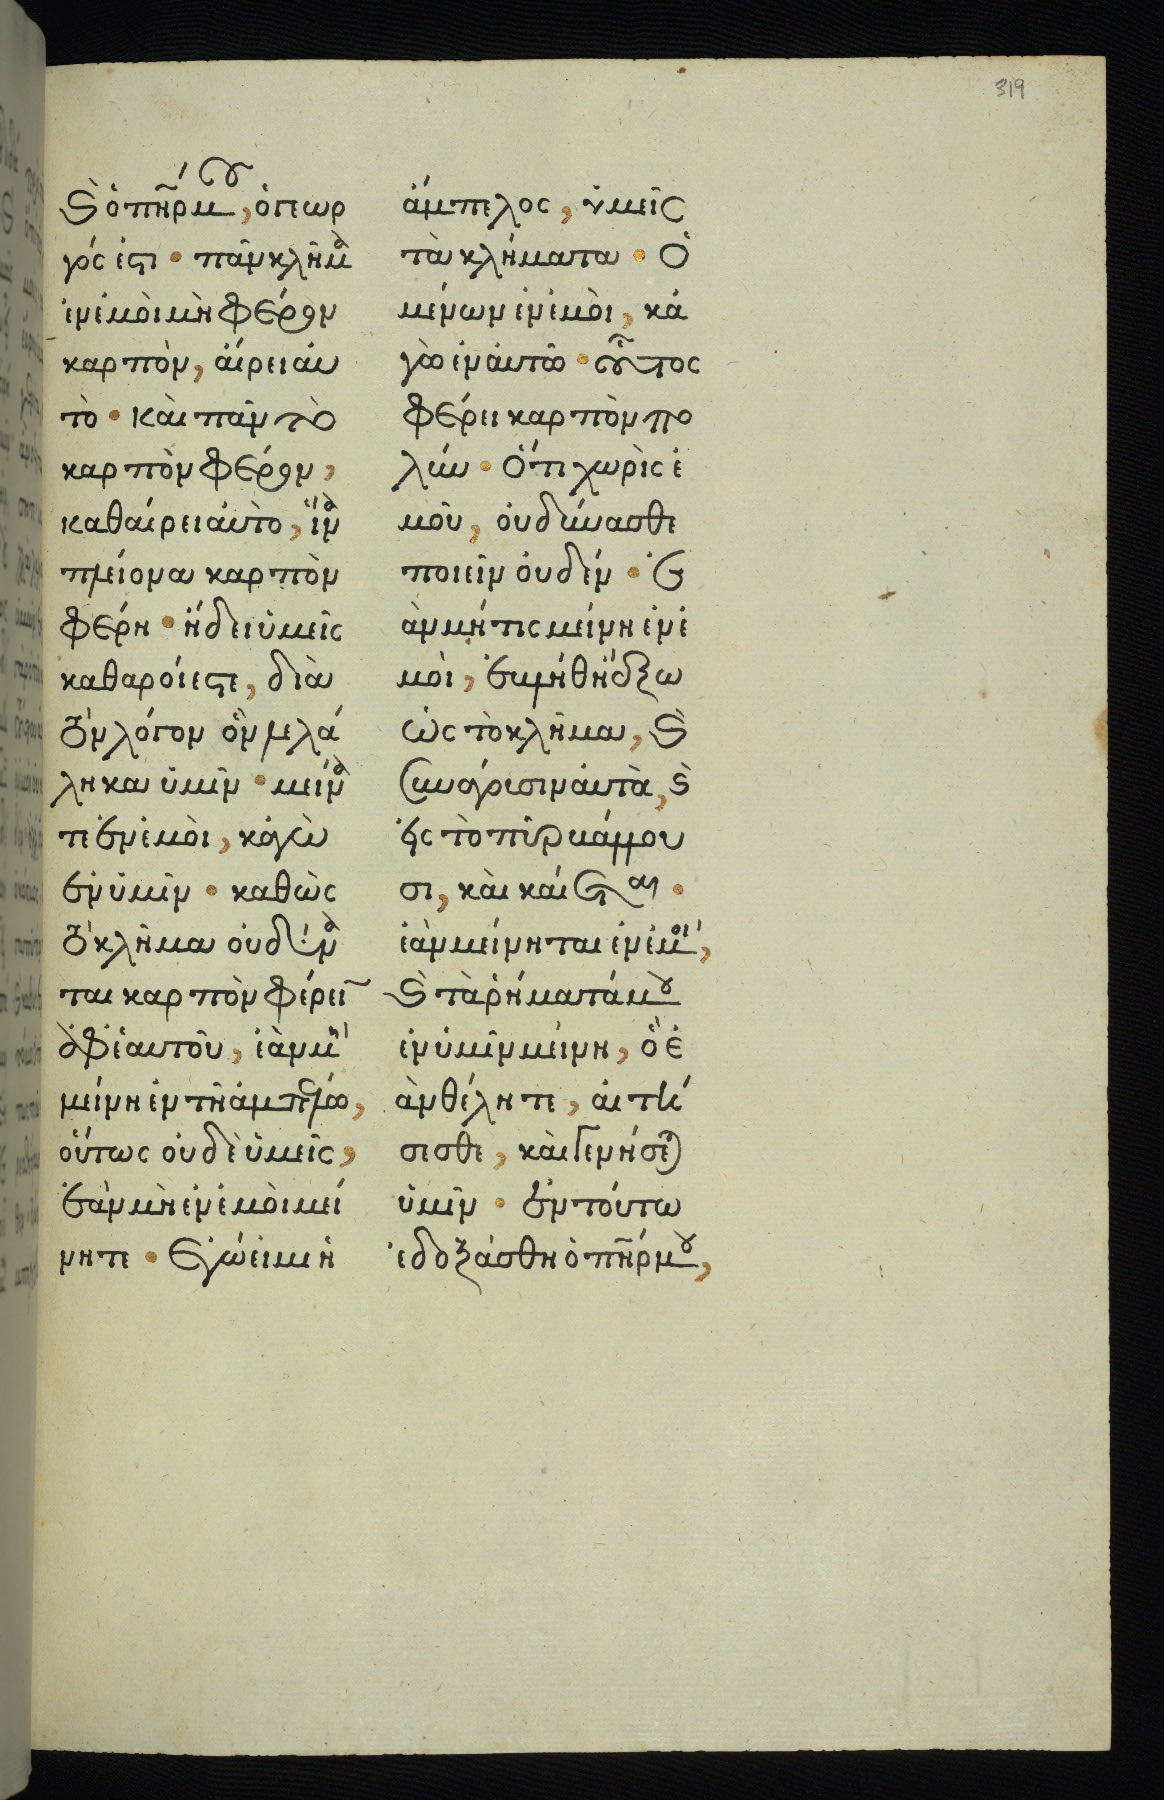 319
ϗ ὁ πηρ μου, ὁ γεωρ
γός ἐστι · πᾶν κλῆμα
ἐν ἐμοὶ μὴ φέρον
καρπὸν, αἴρει αυ
τὸ · καὶ πᾶν τὸ
καρπὸν φέρον,
καθαίρει αὐτὸ, ἵνα
πλείονα καρπὸν
φέρη · ἤδει ὑμεῖς
καθαροί ἐστε, διὰ
τὸν λόγον ὃν λελά
ληκα ὑμῖν · μείνα
τε ἐν ἐμοὶ, κἀγὼ
ἐν ὑμῖν · καθὼς
τὸ κλῆμα οὐ δύνα
ται καρπὸν φέρειν
ἀφ' ἑαυτοῦ, ἐὰν μὴ
μείνη ἐν τῆ ἀμπέλω,
οὕτως οὐδὲ ὑμεῖς,
ἐὰν μὴ ἐν ἐμοὶ μεί
νητε · Εγώ εἰμι ἡ
ἄμπελος, ὑμεῖς
τὰ κλήματα · Ὁ
μένων ἐν ἐμοὶ, κα
γὼ ἐν αὐτῶ · οὗτος
φέρει καρπὸν πο
λύν · Ὅτι χωρὶς ἐ
μοῦ, οὐ δύνασθε
ποιεῖν οὐδέν · ἐ
ὰν μή τις μείνη ἐν ἐ
μοὶ, ἐβλήθη ἔξω
ὡς τὸ κλῆμα, ϗ
συνάγουσιν αὐτὰ, ϗ
εἰς τὸ πῦρ βάλλου
σι, καὶ καίεται ·
ἐὰν μείνηται ἐν ἐμοί,
ϗ τὰ ῥήματά μου
ἐν ὑμῖν μείνη, ὃ ἐ
ὰν θέλητε, αἰτή
σεσθε, καὶ γενήσεται
ὑμῖν · ἐν τούτω
ἐδοξάσθη ὁ πηρ μου,